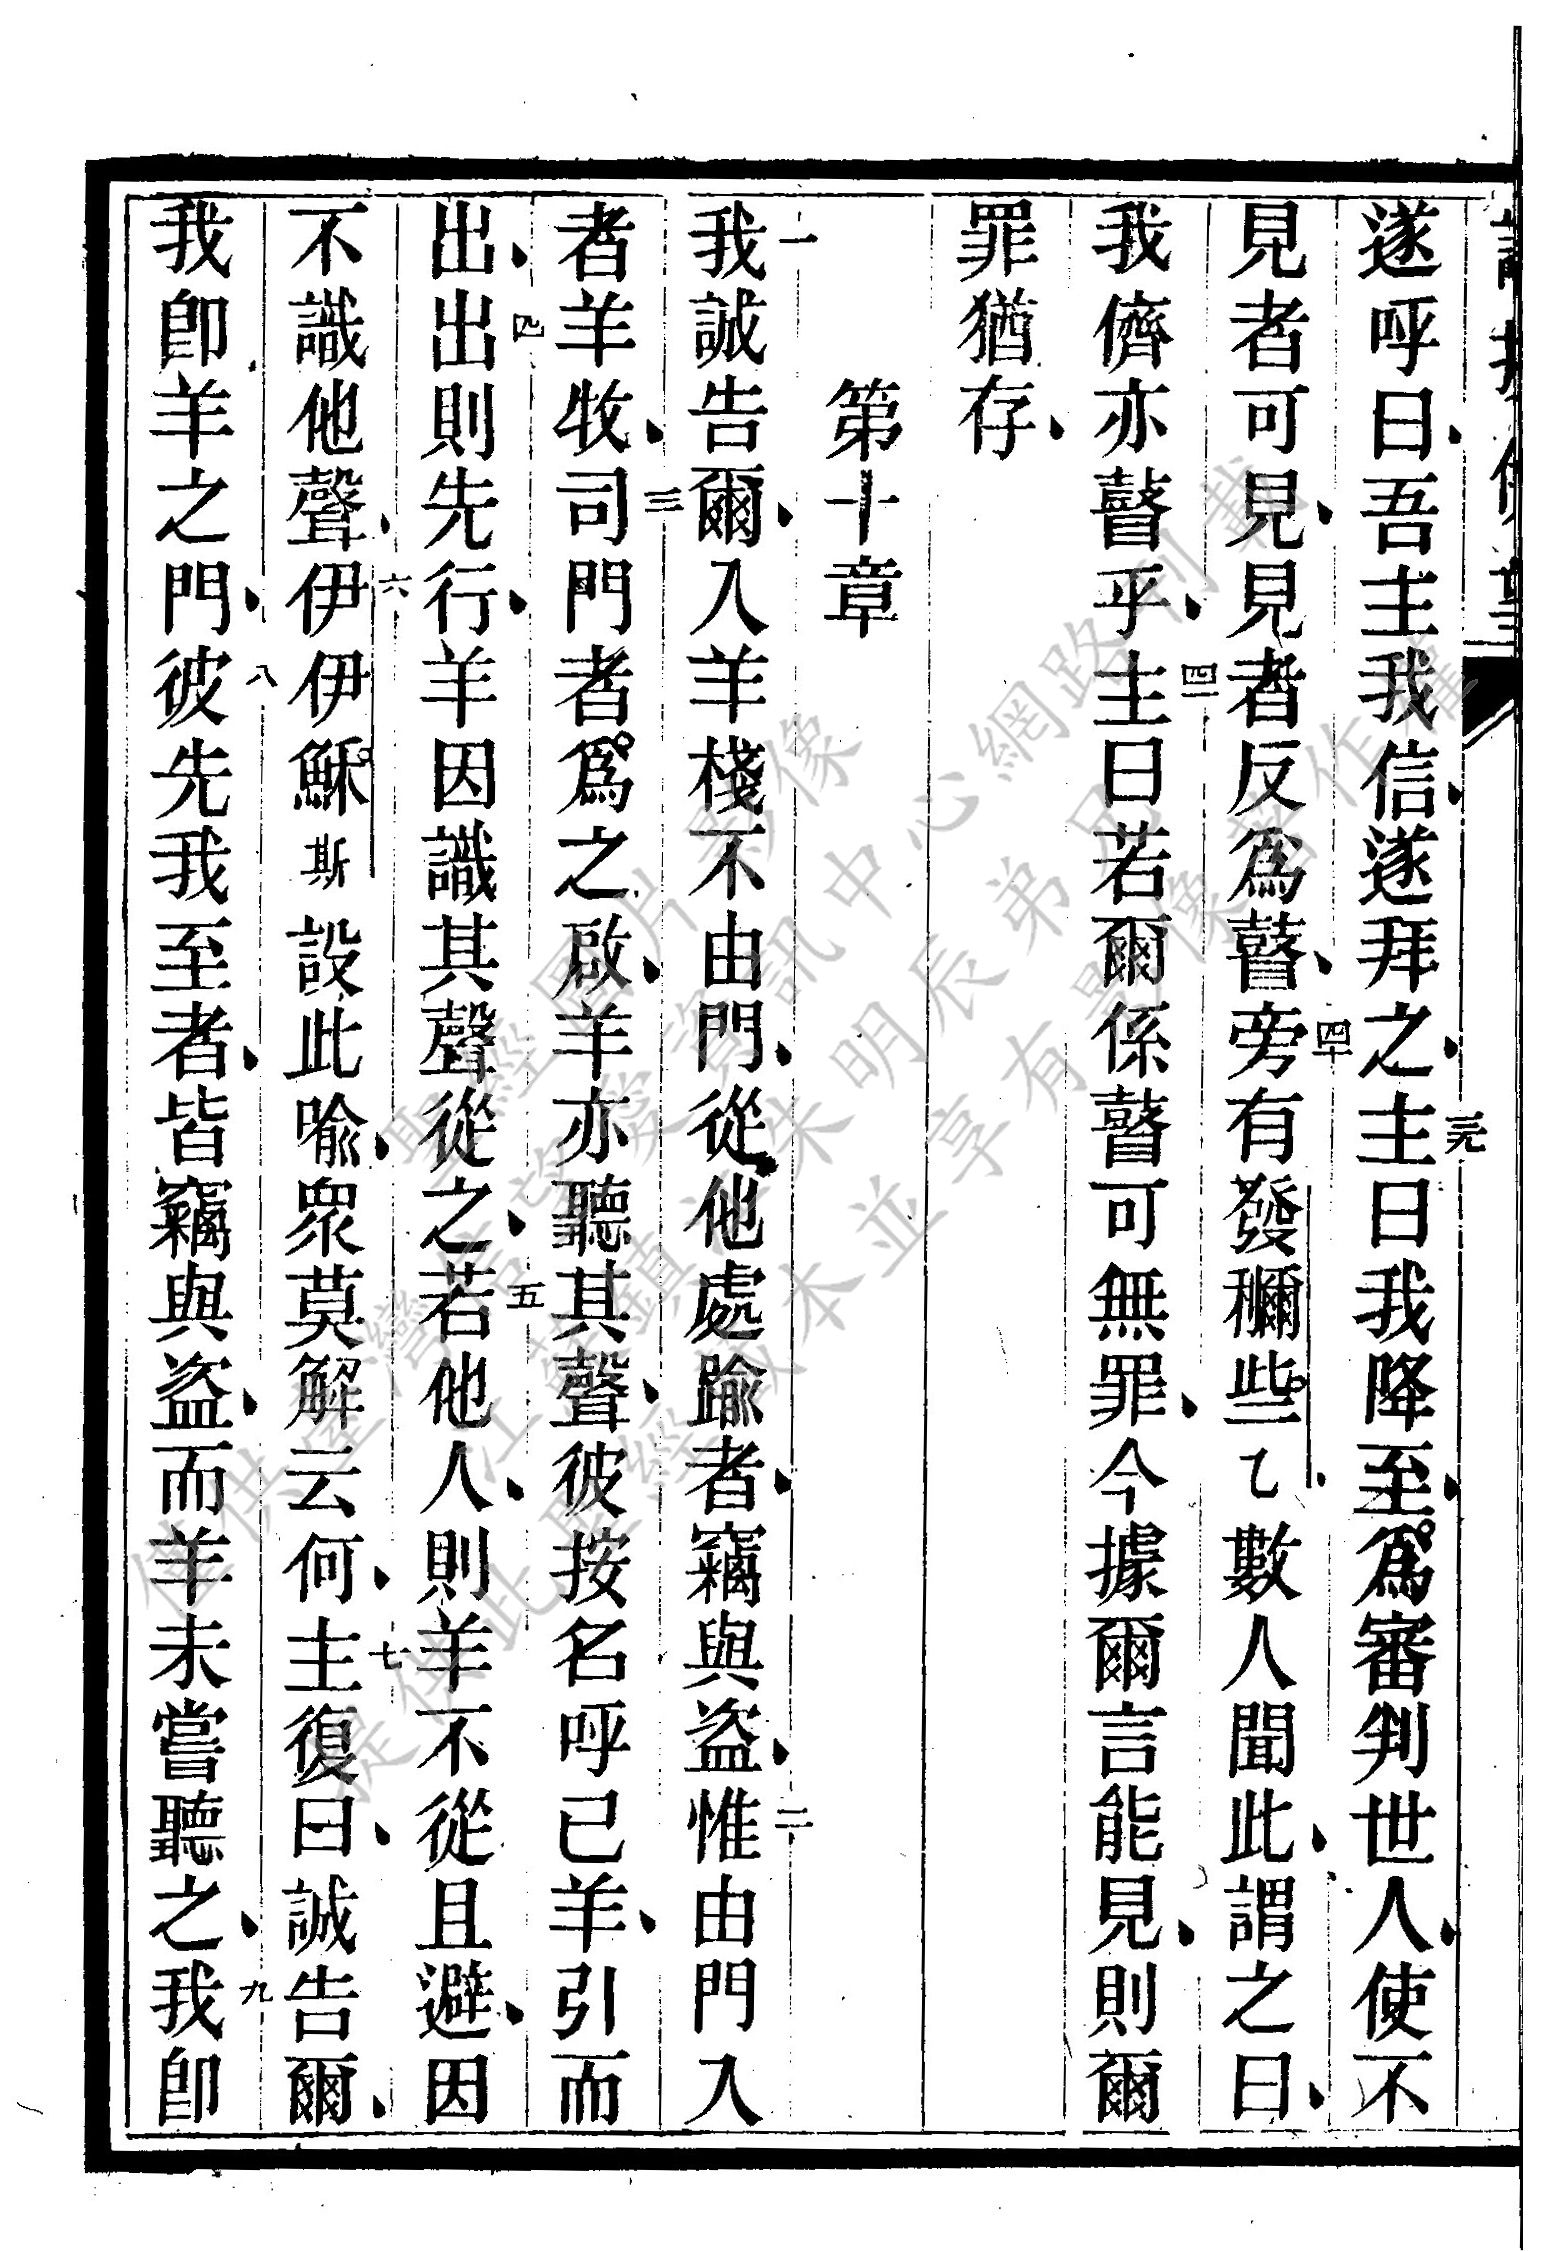 遂呼曰、吾主我信、遂拜之、三九主曰我降至、爲審判世人、使不
見者可見、見者反爲瞽、四十旁有發穪些乙數人聞此、謂之曰、
我儕亦瞽乎、四一主曰若爾係瞽可無罪、今據爾言能見、則爾
罪猶存、
第十章
一我誠告爾、入羊棧不由門、從他處踰者、竊與盜、二惟由門入
者羊牧、三司門者爲之啟、羊亦聽其聲、彼按名呼己羊、引而
出、四出則先行、羊因識其聲從之、五若他人、則羊不從且避、因
不識他聲、六伊伊穌斯設此喻、眾莫解云何、七主復曰、誠告爾、
我卽羊之門、八彼先我至者、皆竊與盜、而羊未嘗聽之、九我卽